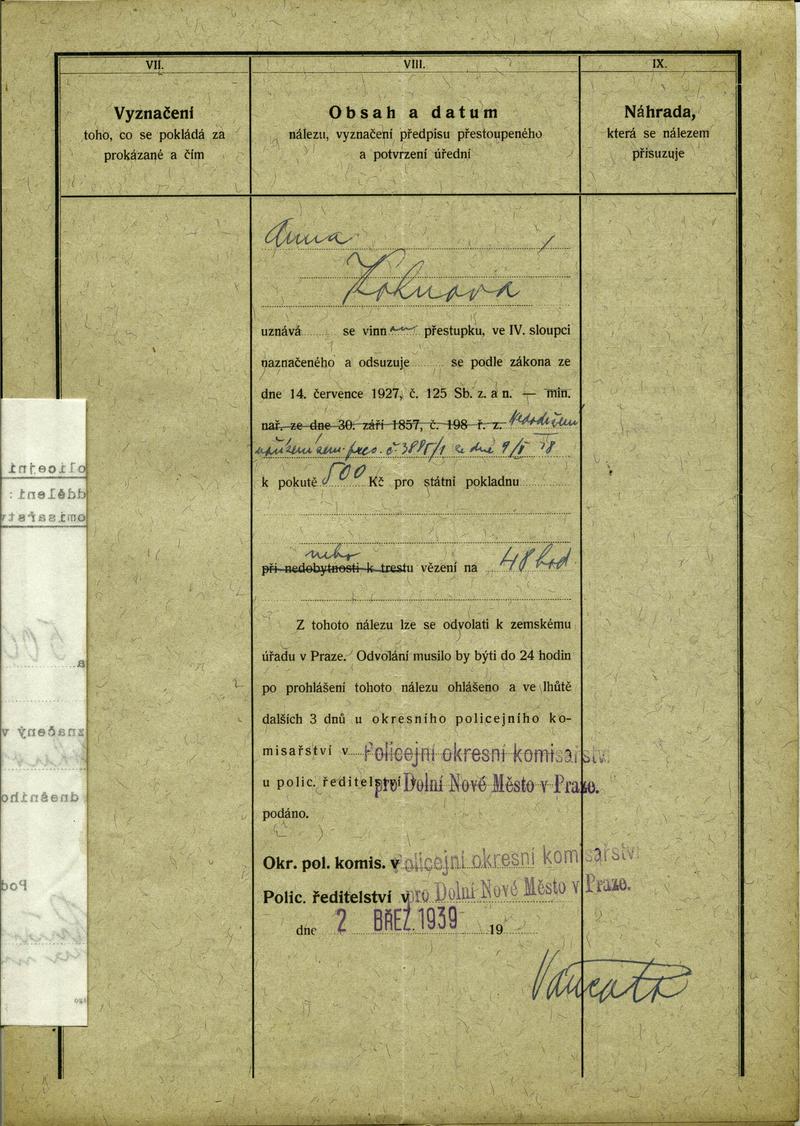 VII.
VIII.
IX.
Vyznačení
toho, co se pokládá za
prokázané a čím
Obsah a datum
nálezu, vyznačení předpisu přestoupeného
a potvrzení úřední
Náhrada,
která se nálezem
přisuzuje
Anna
Kohnová
uznává se vinnou přestupku, ve IV. sloupci
naznačeného a odsuzuje se podle zákona ze
dne 14. července 1927, č. 125 Sb. z. a n. — min.
nař. ze dne 30. září 1857, č. 198 ř. z.
pres. č. ze dne
k pokutě 500 Kč pro státní pokladnu
nebo
při nedobytnosti k trestu vězení na 48 hod
Z tohoto nálezu lze se odvolati k zemskému
úřadu v Praze. Odvolání musilo by býti do 24 hodin
po prohlášení tohoto nálezu ohlášeno a ve lhůtě
dalších 3 dnů u okresního policejního ko-
misařství v Policejní okresní komisařství
u polic. ředitelství v pro Dolní Nové Město v Praze.
podáno.
Okr. pol. komis. v Policejní okresní komisařství
Polic. ředitelství v pro Dolní Nové Město v Praze.
dne 2 BŘEZ. 1939 19